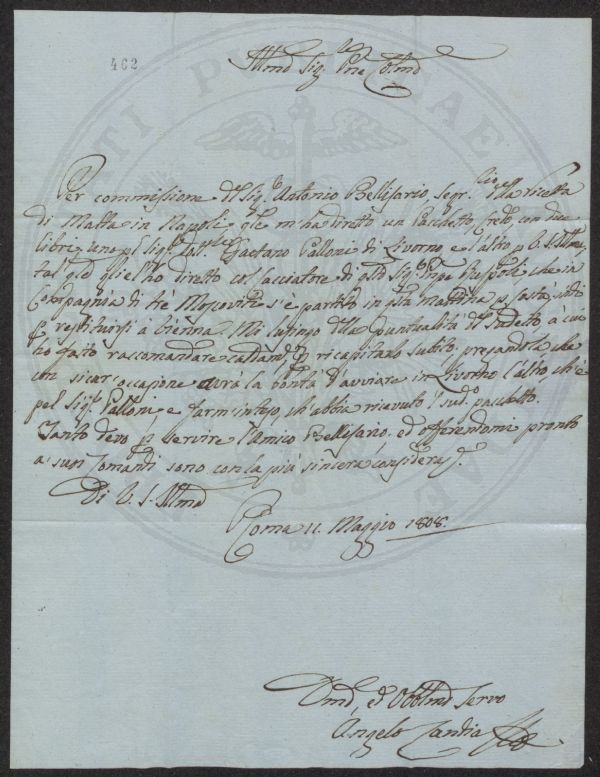 462
Illmo Sig.r Pne Colmo
Per commissione del Sig.r Antonio Bellisario Segr.rio della ricetta
di Malta in Napoli, q.le m'ha diretto un Pacchetto, con due
libre, uno pel Sig.r Dott.re Gaetano Palloni di Livorno, e l'altro p V. S. Illma,
tal q.le glielho diretto col Cacciatore di che in
Compagnia di trè Moscoviti s'è partito in q.sta mattina p costà, indi
p restituirsi à Vienna. Mi lusingo della puntualità del sudetto, à cui
ho fatto raccomandare caldam.e di ricapitarlo subito, pregandola che
con sicur'occasione avrà la bontà d'avviare in Livorno l'altro, ch'è
pel Sig.r Palloni, e farm'inteso, ch'abbia ricevuto il sud.o pacchetto.
Tanto devo p servire l'Amico Bellisario, ed offerendomi pronto
a suoi Comandi sono con la più sincera consideraz.e
Di V. S. Illma
Roma 11. Maggio 1808.
Dmo, ed Obblmo Servo
Angelo Candia